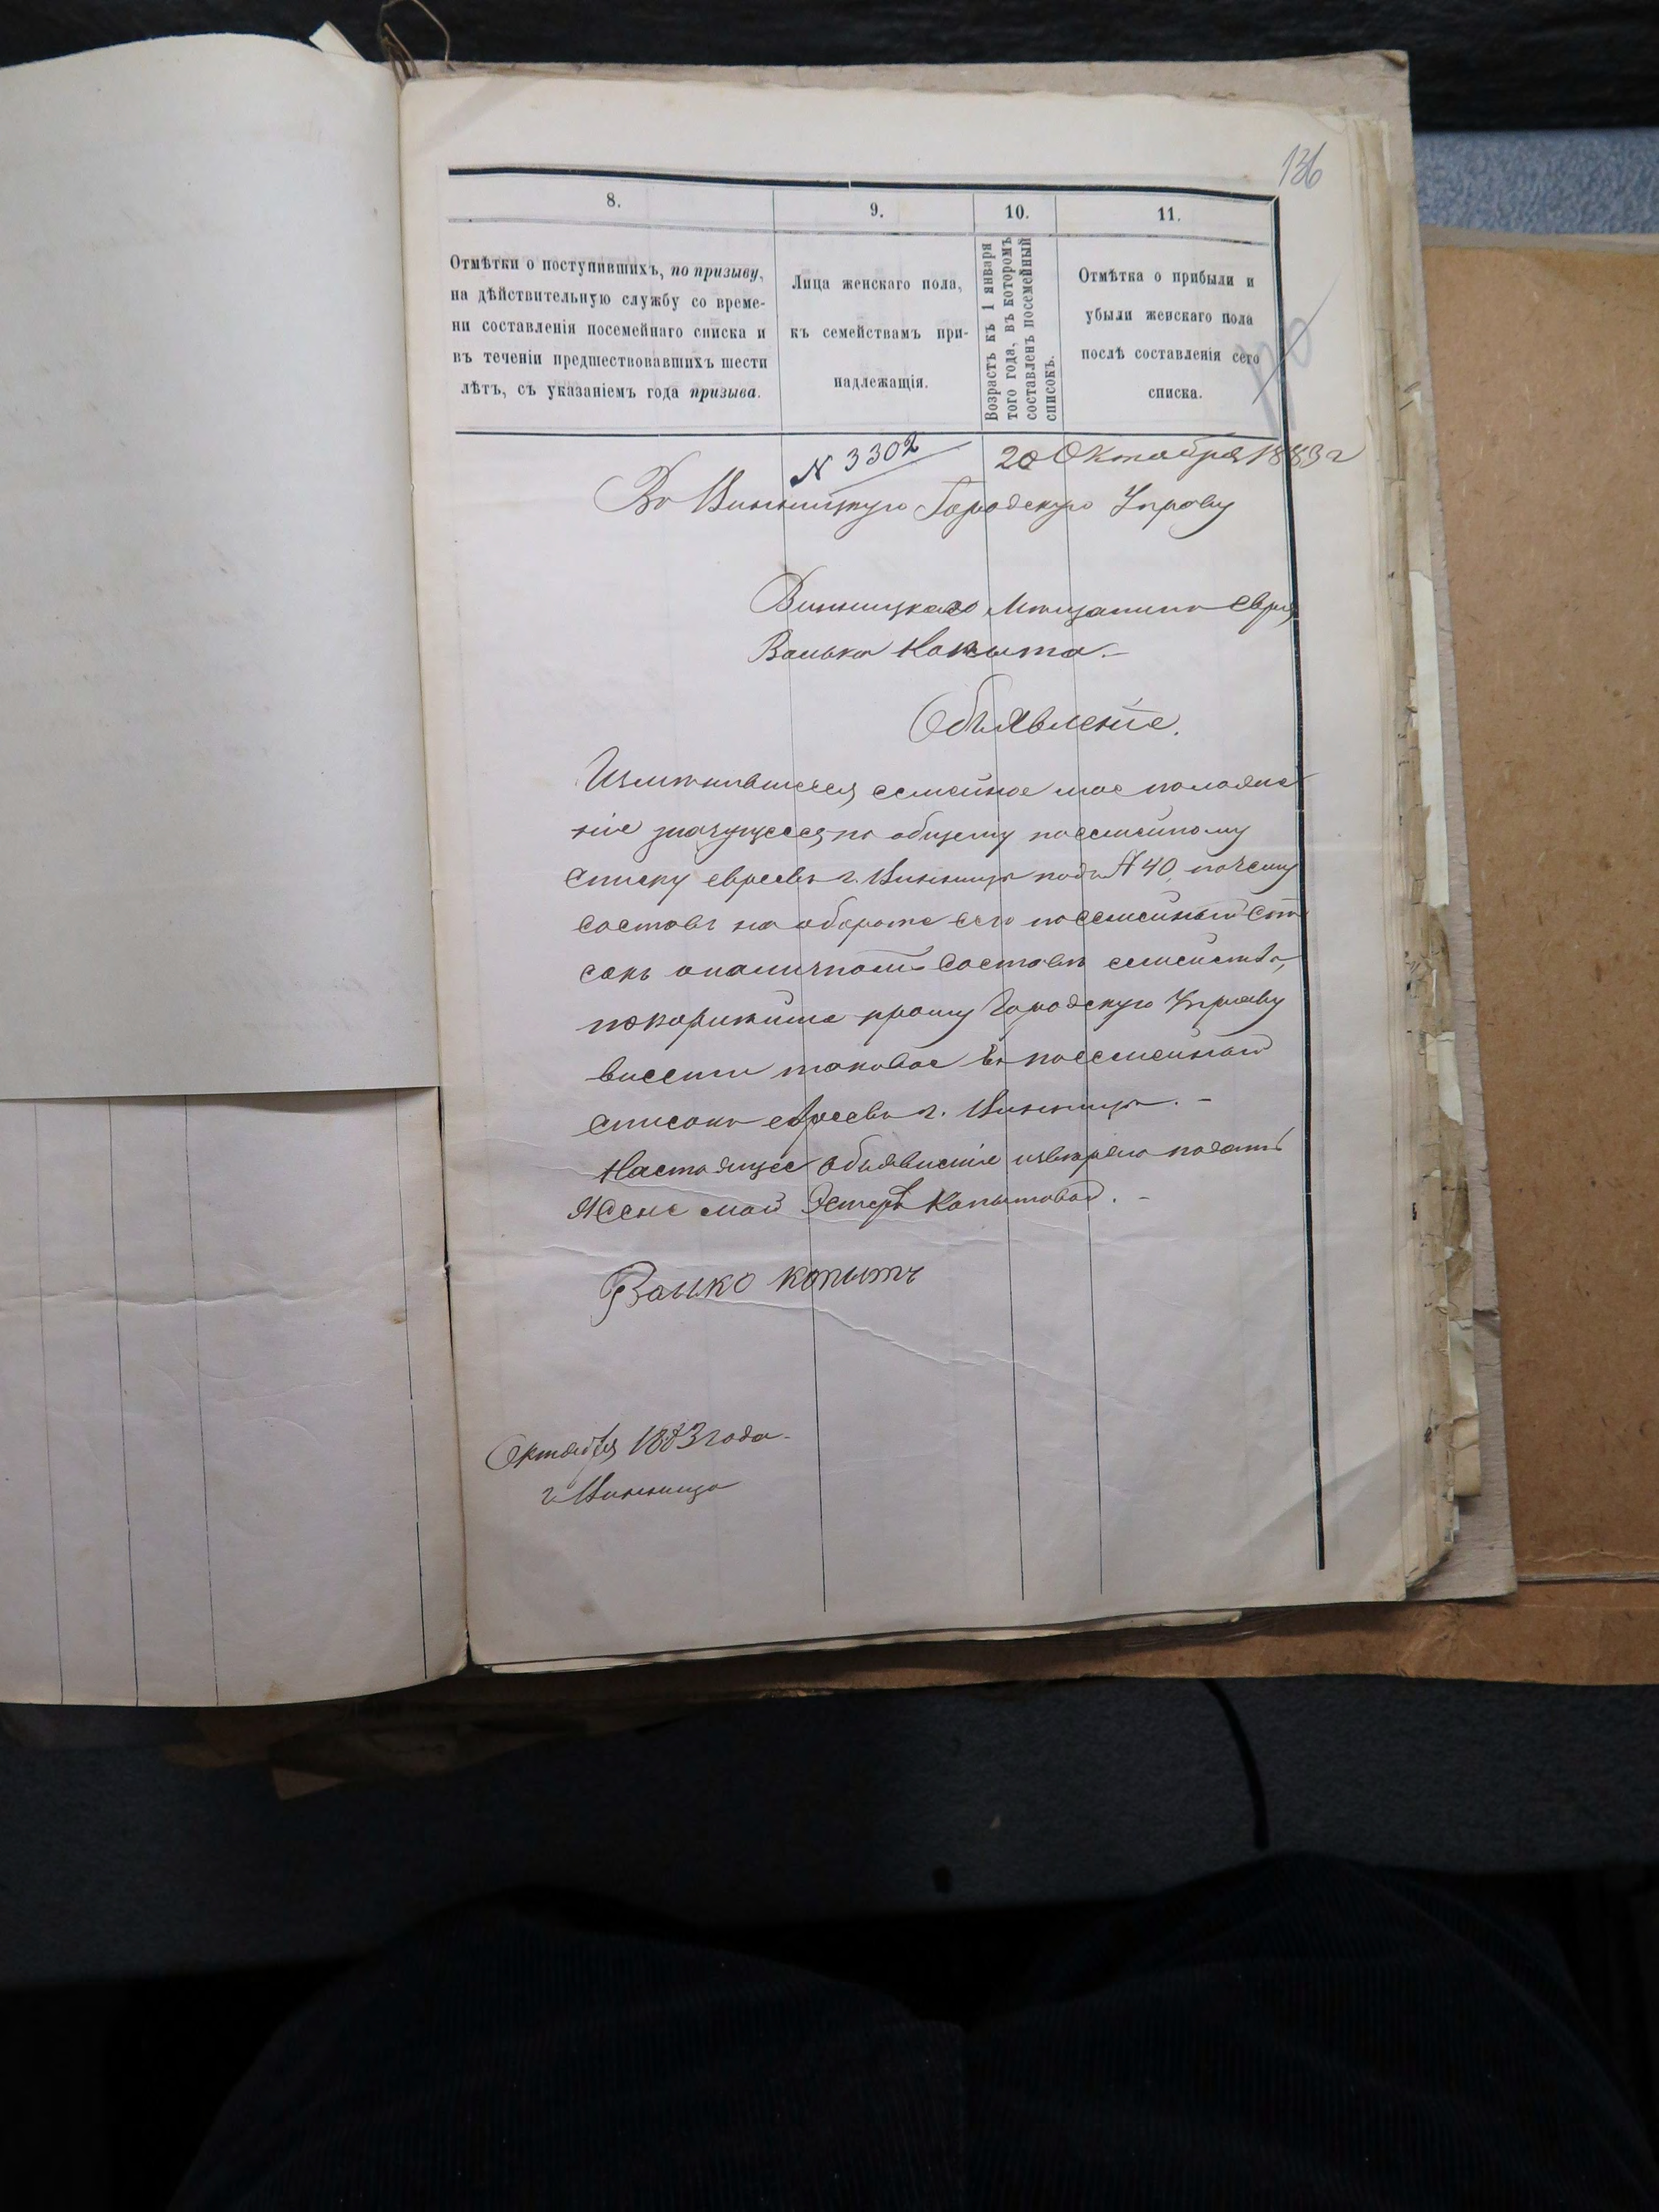 136
8.
9.
10.
11.
Отмѣтки о поступившихъ, по призыву,
на дѣйствительную службу со време-
ни составленія посемейнаго списка и
въ теченіи предшествовавшихъ шести
лѣтъ, съ указаніемъ года призыва.
Лица женскаго пола,
къ семействамъ при-
надлежащія.
Возрастъ къ 1 января
того года, въ которомъ
составленъ посемейный
списокъ.
Отмѣтка о прибыли и
убыли женскаго пола
послѣ составленія сего
списка.
N 3302 20 Октября 1883 г
Въ Винницкую Городскую Управу
Винницкаго Мѣщанина Еврея
Волько Копыта.–
Объявленіе.
Измѣнившееся семейное мое положе
ніе значущееся по общему посемейному
списку евреевъ г. Винницы подъ № 40, почему
составъ на оборотѣ сего посемейный спи
сокъ о наличномъ составѣ семейства,
покорнѣйше прошу Городскую Управу
внести таковое въ посемейный
списокъ евреевъ г. Винницы. –
Настоящее объявленіе ввѣряю подать
Женѣ моей Эстерѣ Копытовой. –
Волко копытъ
Октября 1883 года.
г Винница